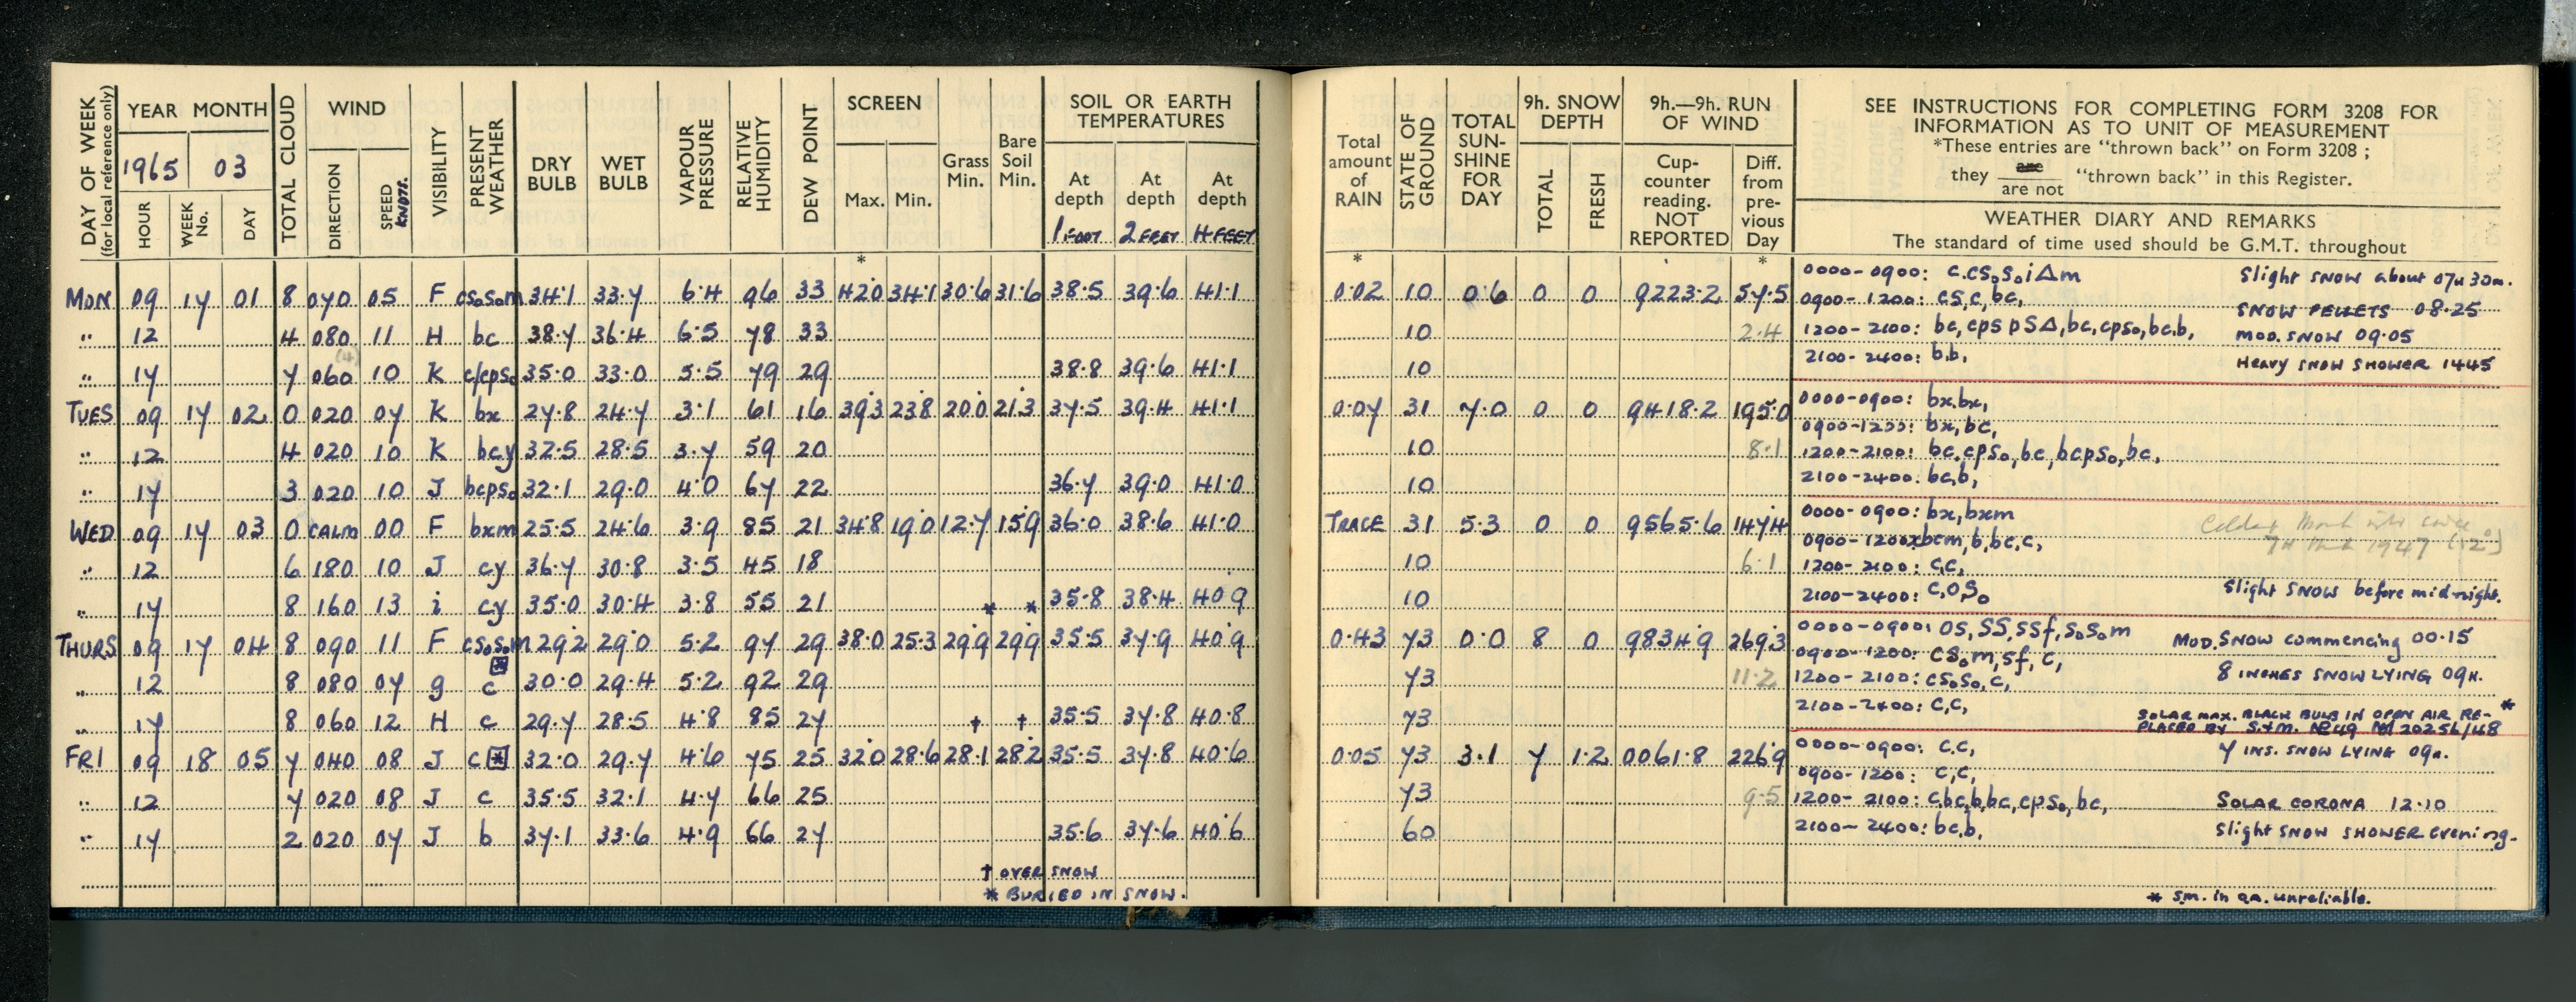 DAY OF WEEK (for local reference only)
YEAR MONTH
1965 03
HOUR WEEK No. DAY
TOTAL CLOUD
WIND
DIRECTION SPEED KNOTS.
VISIBILITY
PRESENT WEATHER
DRY BULB
WET BULB
VAPOUR PRESSURE
RELATIVE HUMIDITY
DEW POINT
SCREEN
Max. Min.
Grass Min.
Bare Soil Min.
SOIL OR EARTH TEMPERATURES
At depth 1 FOOT
At depth 2 FEET
At depth 4 FEET
Total amount of RAIN
STATE OF GROUND
TOTAL SUN-SHINE FOR DAY
9h. SNOW DEPTH
TOTAL FRESH
9h.—9h. RUN OF WIND
Cup-counter reading. NOT REPORTED
Diff. from pre-vious Day
SEE INSTRUCTIONS FOR COMPLETING FORM 3208 FOR
INFORMATION AS TO UNIT OF MEASUREMENT
*These entries are "thrown back" on Form 3208 ;
they are / are not "thrown back" in this Register.
WEATHER DIARY AND REMARKS
The standard of time used should be G.M.T. throughout
* * *
MON 09 17 01 8 070 05 F cs₀s₀m 34·1 33·7 6·4 96 33 42·0 34·1 30·6 31·6 38·5 39·6 41·1 0·02 10 0·6 0 0 9223·2 57·5
0000-0900: c.cs₀s₀iΔm Slight SNOW about 07H 30m.
0900-1200: cs,c,bc, SNOW PELLETS 08·25
" 12 4 080 11 H bc 38·7 36·4 6·5 78 33 10 2·4
1200-2100: bc,cps pSΔ,bc,cps₀,bc,b, MOD. SNOW 09·05
" 17 7 060 10 K c/cps₀ 35·0 33·0 5·5 79 29 38·8 39·6 41·1 10
2100-2400: b.b, Heavy SNOW SHOWER 1445
TUES 09 17 02 0 020 07 K bx 27·8 24·7 3·1 61 16 39·3 23·8 20·0 21·3 37·5 39·4 41·1 0·07 31 7·0 0 0 9418·2 195·0
0000-0900: bx.bx,
0900-1200: bx, bc,
" 12 4 020 10 K bcy 32·5 28·5 3·7 59 20 10 8·1
1200-2100: bc,cps₀,bc,bcps₀,bc,
" 17 3 020 10 J bcps₀ 32·1 29·0 4·0 67 22 36·7 39·0 41·0 10
2100-2400: bc,b,
WED 09 17 03 0 CALM 00 F bxm 25·5 24·6 3·9 85 21 34·8 19·0 12·7 15·9 36·0 38·6 41·0 TRACE 31 5·3 0 0 9565·6 147·4
0000-0900: bx,bxm
0900-1200: xbcm,b,bc,c, 1947 (12°)
" 12 6 180 10 J cy 36·7 30·8 3·5 45 18 10 6·1
1200-2100: c,c,
" 17 8 160 13 i cy 35·0 30·4 3·8 55 21 * * 35·8 38·4 40·9 10
2100-2400: c,o,s₀ Slight SNOW before midnight.
THURS 09 17 04 8 090 11 F cs₀s₀m 29·2 29·0 5·2 97 29 38·0 25·3 29·9 29·9 35·5 37·9 40·9 0·43 73 0·0 8 0 9834·9 269·3
0000-0900: os,SS,SSf,s₀s₀m MOD. SNOW commencing 00·15
0900-1200: cs₀m,sf,c,
" 12 8 080 07 g c 30·0 29·4 5·2 92 29 73 11·2
1200-2100: cs₀s₀,c, 8 INCHES SNOW LYING 09H.
" 17 8 060 12 H c 29·7 28·5 4·8 85 27 † † 35·5 37·8 40·8 73
2100-2400: c,c, SOLAR MAX. BLACK BULB IN OPEN AIR RE- *
PLACED BY
FRI 09 18 05 7 040 08 J c [*] 32·0 29·7 4·6 75 25 32·0 28·6 28·1 28·2 35·5 37·8 40·6 0·05 73 3·1 7 1·2 0061·8 226·9
0000-0900: c.c, 7 INS. SNOW LYING 09H.
0900-1200: c,c,
" 12 7 020 08 J c 35·5 32·1 4·7 66 25 73 9·5
1200-2100: c,bc,b,bc,cps₀,bc, SOLAR CORONA 12·10
" 17 2 020 07 J b 37·1 33·6 4·9 66 27 35·6 37·6 40·6 60
2100-2400: bc,b, Slight SNOW SHOWER evening.
† OVER SNOW
* BURIED IN SNOW.
* S.M. in o.a. unreliable.